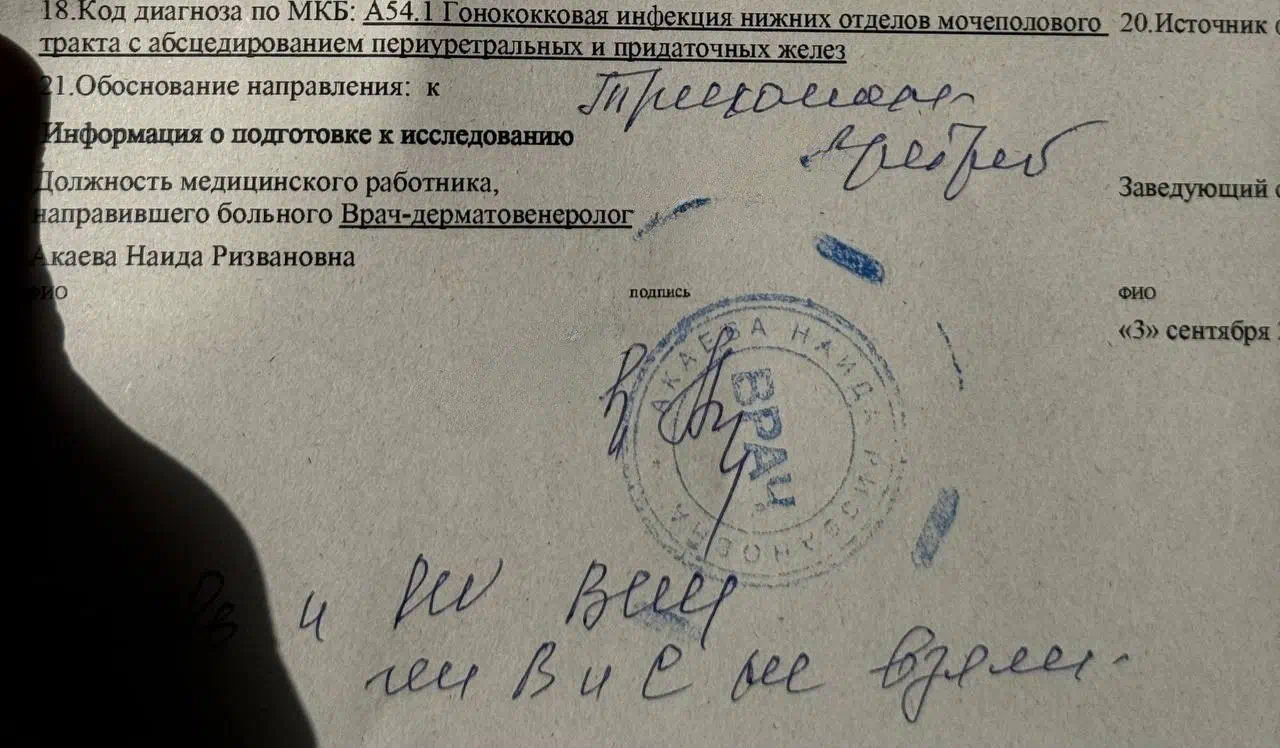 18.Код диагноза по МКБ: А54.1 Гонококковая инфекция нижних отделов мочеполового
тракта с абсцедированием периуретральных и придаточных желез
20.Источник
21.Обоснование направления: к
Информация о подготовке к исследованию
Должность медицинского работника,
направившего больного Врач-дерматовенеролог
Заведующий
Акаева Наида Ризвановна
ФИО
подпись
ФИО
«3» сентября
АКАЕВА НАИДА РИЗВАНОВНА
ВРАЧ
и
В и С не взяли